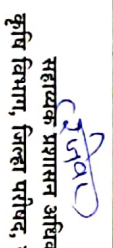 सहाय्यक प्रशासन अधिक
कृषि विभाग, जिल्हा परिषद,